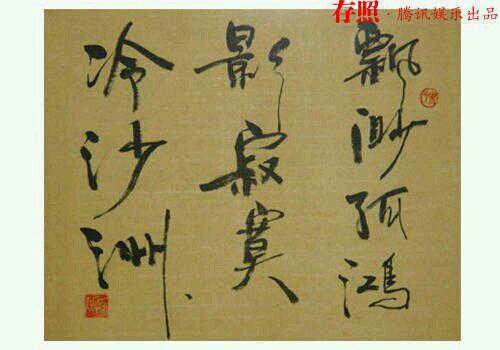 存照·腾讯娱乐出品
飘渺孤鴻
影寂寞
冷沙洲